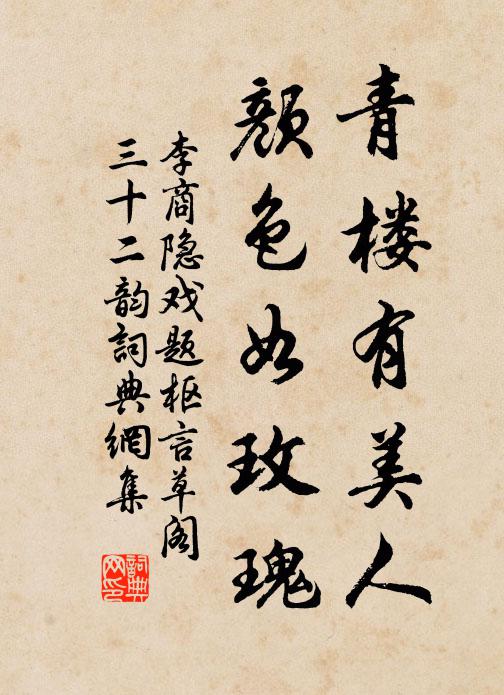 青楼有美人
颜色如玫瑰
李商隐戏题枢言草阁
三十二韵詞典網集
詞典
网印